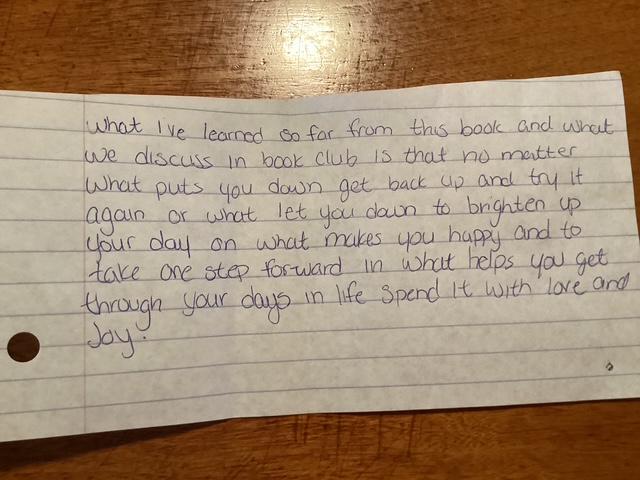 What I've learned so far from this book and what
we discuss in book club is that no matter
what puts you down get back up and try it
again or what let you down to brighten up
your day on what makes you happy and to
take one step forward in what helps you get
through your days in life spend it with love and
Joy.